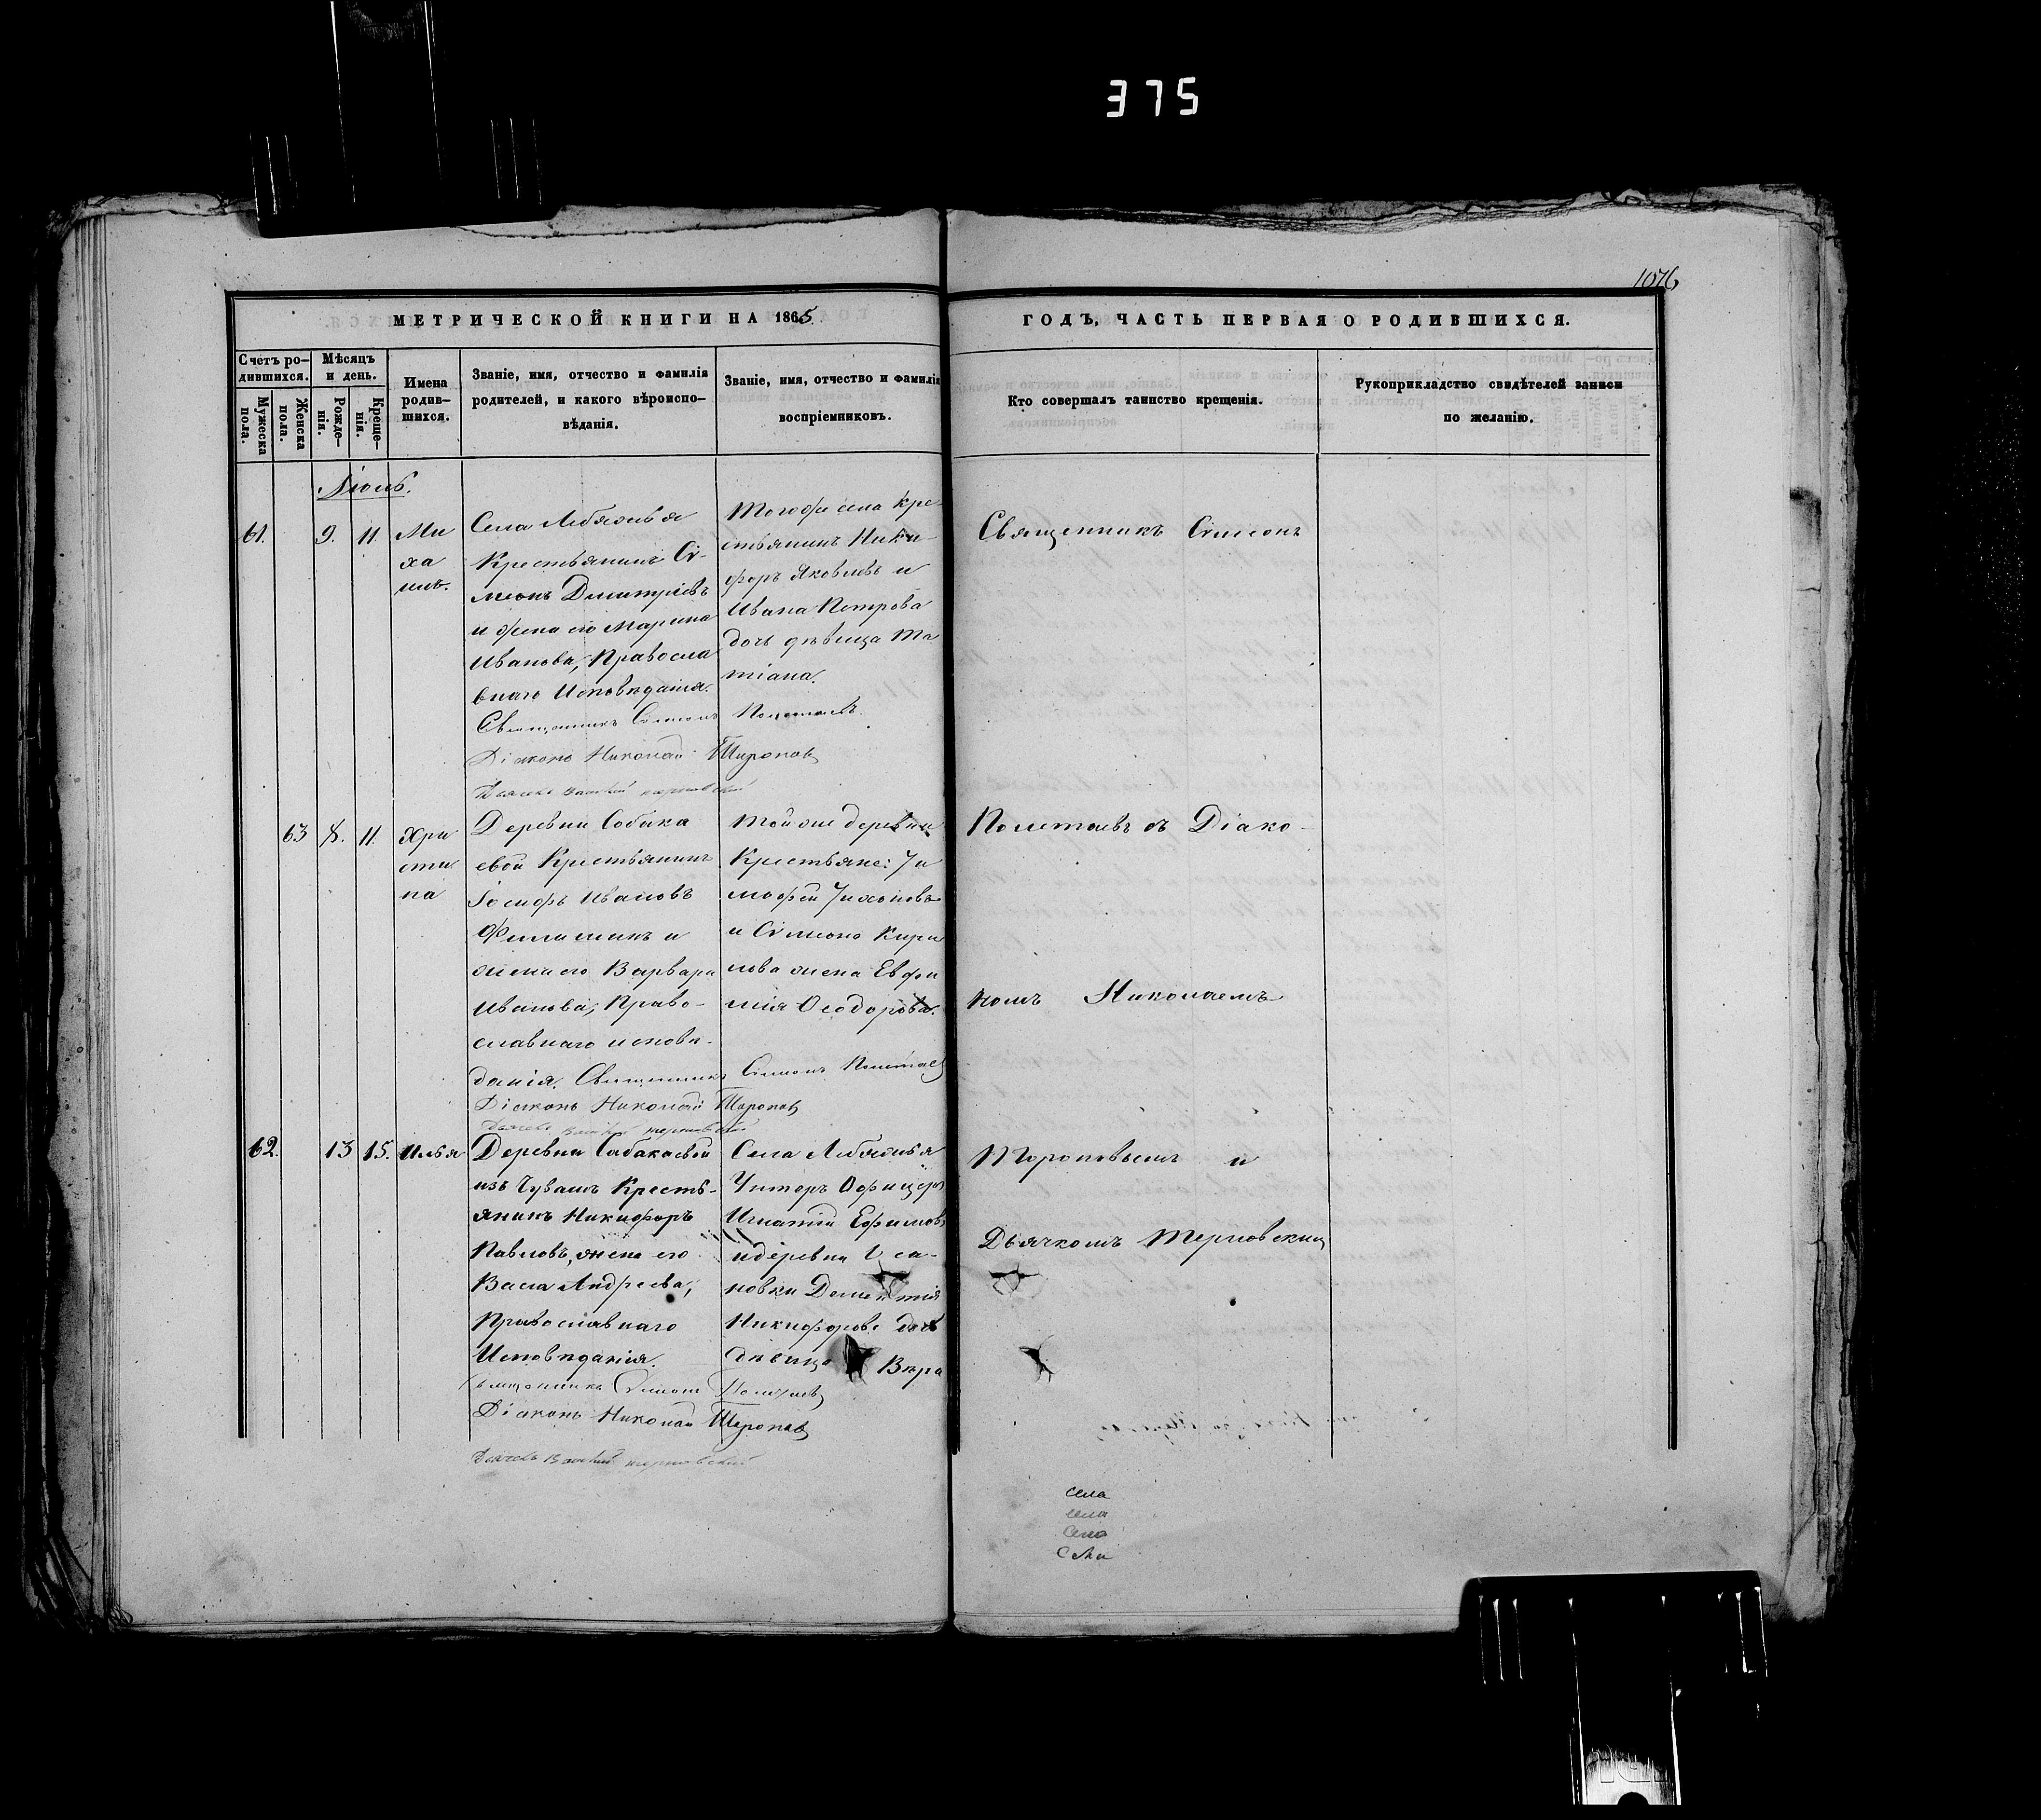 375
1076
МЕТРИЧЕСКОЙ КНИГИ НА 1865
ГОДЪ, ЧАСТЬ ПЕРВАЯ О РОДИВШИХСЯ.
Счетъ ро-
дившихся.
Мужеска
пола.
Женска
пола.
Мѣсяцъ
и день.
Рожде-
нія.
Креще-
нія.
Имена
родив-
шихся.
Званіе, имя, отчество и фамилія
родителей, и какого вѣроиспо-
вѣданія.
Званіе, имя, отчество и фамилія
воспріемниковъ.
Кто совершалъ таинство крещенія.
Рукоприкладство свидѣтелей записи
по желанію.
61.
9.
11.
Ми
ха
илъ.
Села Лебяжья
Крестьянинъ Си-
меонъ Димитріевъ
и жена его Марина
Иванова, Правосла
внаго Исповѣданія.
Священникъ Симеонъ Полетаевъ.
Діаконъ Николай Тороповъ
Тогоже села Кре-
стьянинъ Ники-
форъ Яковлевъ и
Ивана Петрова
дочь дѣвица Та-
тіана.
63
8.
11.
Хри
сти
на
Деревни Собака
евой Крестьянинъ
Іосифъ Ивановъ
и
жена его Варвара
Иванова, Право-
славнаго исповѣ-
данія. Священникъ Симеонъ Полетаевъ
Діаконъ Николай Тороповъ
Той же деревни
Крестьяне: Ти
мофей Тихоновъ
и Симеона Кири
лова жена Евфи
мія Ѳеодорова.
62.
13
15.
Илья
Деревни Собакаевой
изъ Чувашъ Кресть-
янинъ Никифоръ
Павловъ, жена его
Васса Андреева,
Православнаго
Исповѣданія.
Священникъ Симеонъ Полетаевъ
Діаконъ Николай Тороповъ
Села Лебяжья
Унтеръ Офицеръ
Игнатій Ефимовъ
и деревни
Дементія
Никифорова дочь
дѣвица Вѣра
Священникъ Симеонъ
Полетаевъ съ Діако-
номъ Николаемъ
Тороповымъ и
Дьячкомъ Терновскимъ
села
села
Село
Села